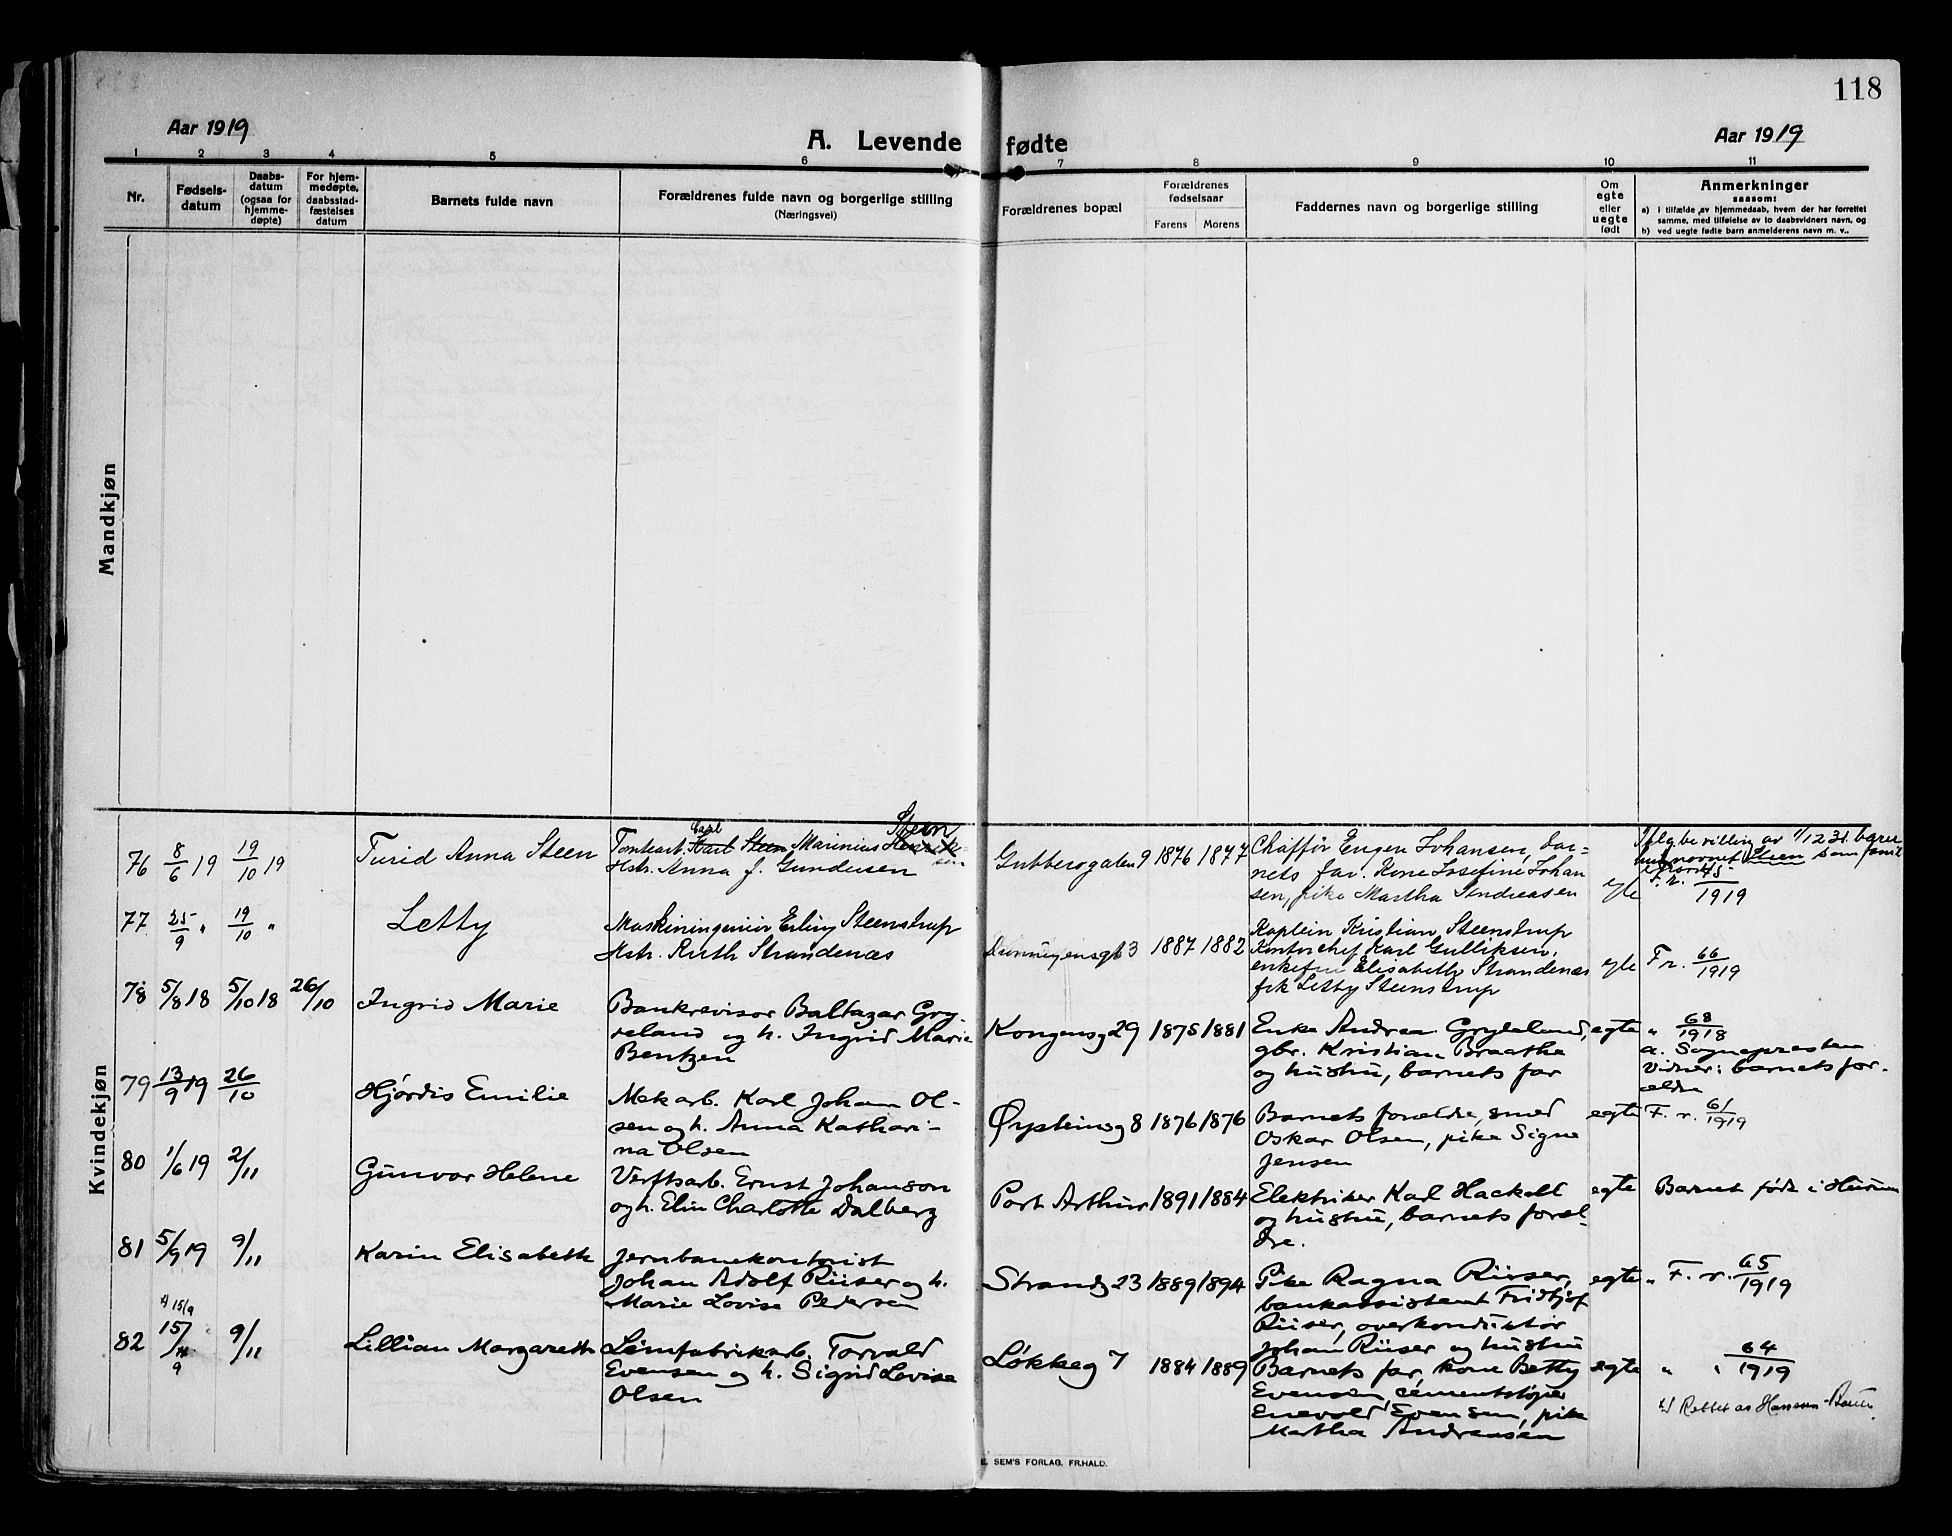 118
Aar 1919
A. Levende fødte
Aar 1919
1 2 3 4 5 6 7 8 9 10 11
Nr.
Fødsels-
datum
Daabs-
datum
(ogsaa for
hjemme-
døpte)
For hjem-
medøpte,
daabsstad-
fæstelses
datum
Barnets fulde navn
Forældrenes fulde navn og borgerlige stilling
(Næringsvei)
Forældrenes bopæl
Forældrenes
fødselsaar
Farens Morens
Faddernes navn og borgerlige stilling
Om
egte
eller
uegte
født
Anmerkninger
saasom:
a) I tilfælde av hjemmedaab, hvem der har forrettet
samme, med tilføielse av to daabsvidners navn, og
b) ved uegte fødte barn anmelderens navn m. v..
Mandkjøn
Kvindekjøn
76 8/6 19 19/10 19
Turid Anna Steen
Carl Steen
Tomtearb. Karl Steen Marinius Henrik-
sen
Hstr. Anna J. Gundersen
Gubberogaten 9 1876 1877
Chaffør Eugen Johansen, bar-
nets far. Kone Josefine Johan
sen, pike Martha Andreasen
egte
Ifølg bevilling av 1/12 31 bærer
navnet Steen som famil
F. r. 45/1919
77 25/9 " 19/10 "
Letty
Maskiningeniør Erling Steenstrup
Hstr. Ruth Strandenæs
Dronningensgt 3 1887 1882
Kaptein Kristian Steenstrup
Kontorchef Karl Gulliksen,
enkefru Elisabeth Strandenæs
frk Letty Steenstrup
egte
F r. 66/1919
78 5/8 18 5/10 18 26/10
Ingrid Marie
Bankrevisor Baltazar Gry-
seland og h. Ingrid Marie
Bentzen
Kongensg 29 1875 1881
Enke Andrea Gryseland,
gbr. Kristian Braathe
og hustru, barnets far
egte
" 68/1918
a. Sognepresten
Vidner: barnets for-
ældre
79 13/9 19 26/10
Hjørdis Emilie
Mek arb. Karl Johan Ol-
sen og h. Anna Kathari-
na Olsen
Øysteinsg 8 1876 1876
Barnets forældre, smed
Oskar Olsen, pike Signe
Jensen
egte
F. r. 61/1919
80 1/6 19 2/11
Gunvor Helene
Verftsarb. Ernst Johanson
og h. Elin Charlotte Dalberg
Port Arthur 1891 1884
Elektriker Karl Hackell
og hustru, barnets foræl-
dre.
egte
Barnet født i Hurum
81 5/9 19 9/11
Karin Elisabeth
Jernbanekontorist
Johan Adolf Riiser og h.
Marie Lovise Pedersen
Strandg 23 1889 1894
Pike Ragna Riiser,
bankassistent Fridtjof
Riiser, overkonduktør
Johan Riiser og hustru
egte
" F. r. 65/1919
x) 15/9
82 15/9 9/11
Lillian Margareth
Limfabrikarb. Torvald
Evensen og h. Sigrid Lovise
Olsen
Løkkeg 7 1884 1889
Barnets far, kone Betty
Evensen, cementstøper
Enevold Evensen, pike
Martha Andreasen
egte
" " 64/1919
x) Rettet av Hansson-
E. SEM'S FORLAG. FR.HALD.